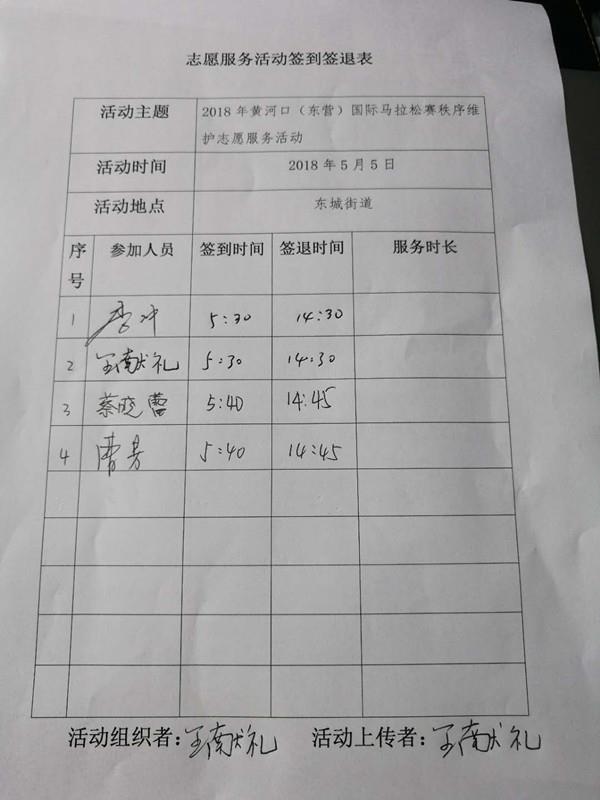 志愿服务活动签到签退表
活动主题 2018年黄河口（东营）国际马拉松赛秩序维
护志愿服务活动
活动时间 2018年5月5日
活动地点 东城街道
序号 参加人员 签到时间 签退时间 服务时长
1 李冲 5:30 14:30
2 王献礼 5:30 14:30
3 蔡晓蕾 5:40 14:45
4 曹芳 5:40 14:45
活动组织者：王献礼 活动上传者：王献礼